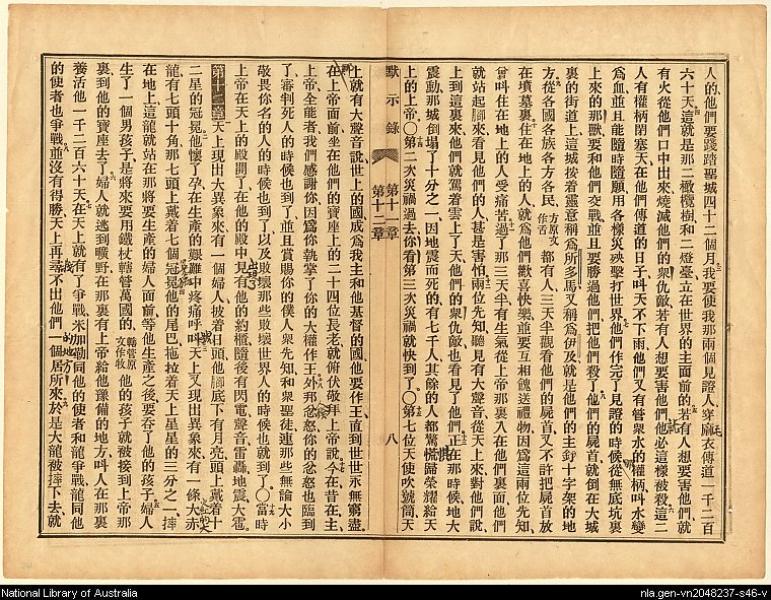 人的、他們要踐踏聖城四十二個月我要使我那兩個見證人穿麻衣傳道一千二百
六十天、這就是那二橄欖樹和二燈臺、立在世界的主面前的、若有人想要害他們就
有火從他們口中出來燒滅他們的衆仇敵若有人想要害他們他必這樣被殺這二
人有權柄閉塞天在他們傳道的日子、叫天不下雨他們又有管衆水的權柄叫水變
爲血並且能隨時隨願用各樣災殃擊打世界他們作完了見證的時候從無底坑裏
上來的那獸要和他們交戰並且要勝過他們把他們殺了他們的屍首就倒在大城
裏的街道上這城按着靈意稱爲所多馬又稱爲伊及就是他們的主釘十字架的地
方從各國各族各方各民方原文作舌都有人三天半觀看他們的屍首又不許把屍首放
在墳墓裏住在地上的人就爲他們歡喜快樂並要互相餽送禮物因爲這兩位先知
曾叫住在地上的人受痛苦過了那三天半有生氣從上帝那裏入在他們裏面他們
就站起腳來看見他們的人甚是害怕兩位先知聽見有大聲音從天上來對他們說、
上到這裏來他們就駕着雲上了天他們的衆仇敵也看見了他們正在那時候地大
震動那城倒塌了十分之一因地震而死的有七千人其餘的人都驚慌歸榮耀給天
上的上帝〇第二次災禍過去你看第三次災禍就快到了〇第七位天使吹號筒天
默示錄 第十一章 第十二章 八
上就有大聲音說世上的國成爲我主和他基督的國他要作王直到世世無窮盡
在上帝面前坐在他們的寶座上的二十四位長老就俯伏敬拜上帝說今在昔在主、
上帝全能者我們感謝你因爲你執掌了你的大權作王外邦忿怒你的忿怒也臨到
了審判死人的時候也到了並且賞賜你的僕人衆先知和衆聖徒連那些無論大小
敬畏你名的人的時候也到了以及敗壞那些敗壞世界人的時候也就到了〇當時
上帝在天上的殿開了在他的殿中見有他的約櫃隨後有閃電聲音雷轟地震大雹
第十二章天上現出大異象來有一個婦人披着日頭他腳底下有月亮頭上戴着十
二星的冠冕他懷了孕在生產的艱難中疼痛呼叫天上又現出異象來有一條大赤
龍有七頭十角那七頭上戴着七個冠冕他的尾巴拖拉着天上星星的三分之一摔
在地上這龍就站在那將要生產的婦人面前等他生產之後要吞了他的孩子婦人
生了一個男孩子是將來要用鐵杖轄管萬國的轄管原文作牧他的孩子就被接到上帝那
裏到他的寶座去了婦人就逃到曠野在那裏有上帝給他豫備的地方叫人在那裏
養活他一千二百六十天在天上就有了爭戰米加勒同他的使者和龍爭戰龍同他
的使者也爭戰並沒有得勝天上再尋不出他們一個居所來於是大龍被摔下去就
National Library of Australia
nla.gen-vn2048237-s46-v